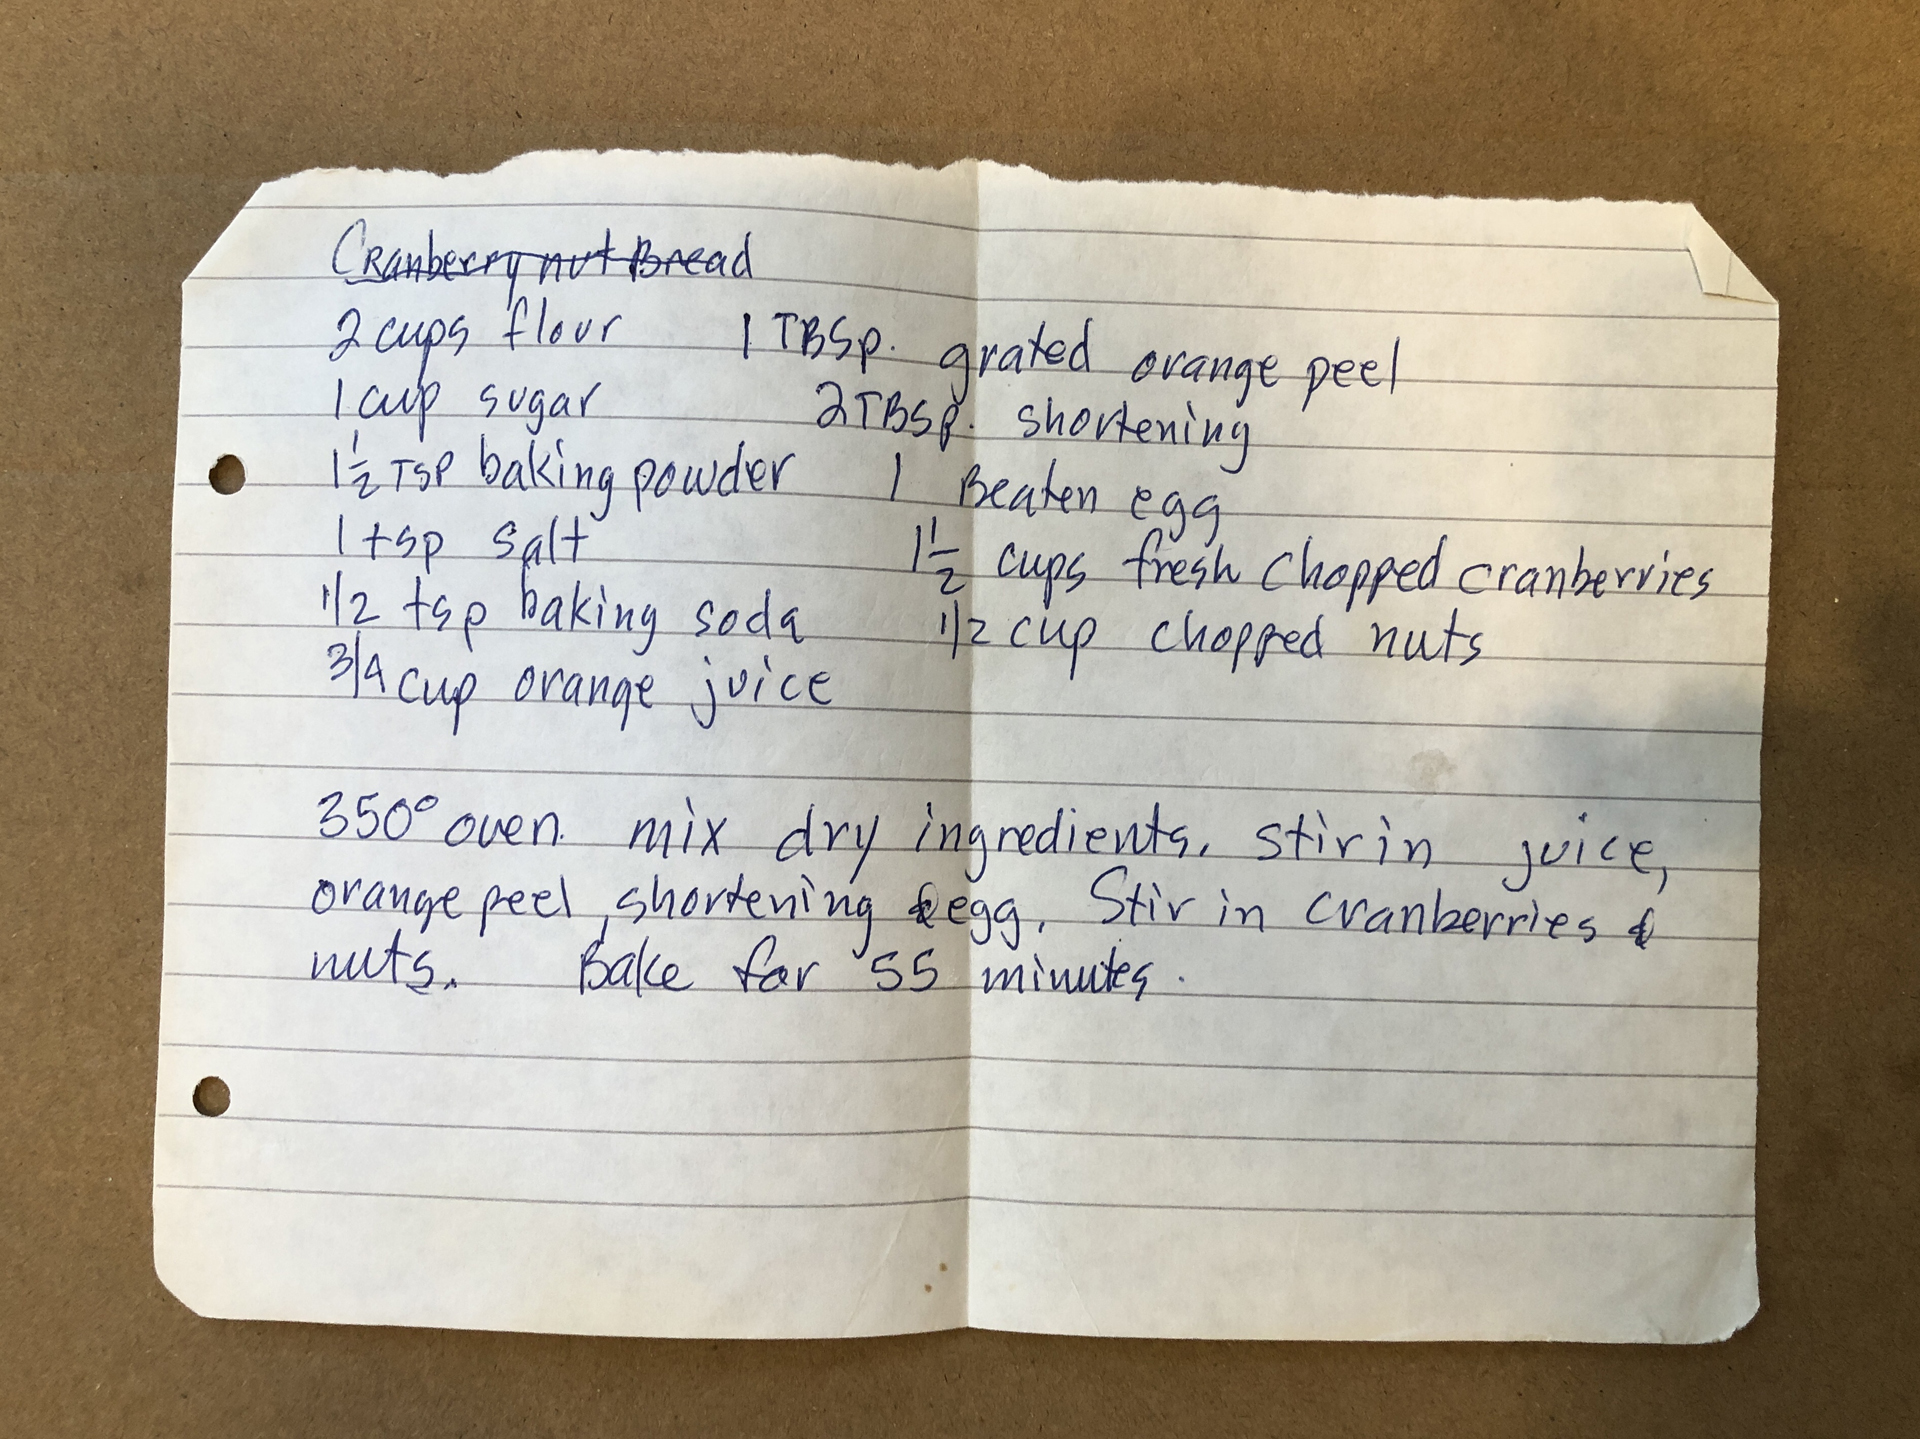 Cranberry nut Bread
2 cups flour
1 cup sugar
1 1/2 TSP baking powder
1 tsp salt
1/2 tsp baking soda
3/4 cup orange juice
1 TBSp. grated orange peel
2 TBSp. shortening
1 Beaten egg
1 1/2 cups fresh chopped cranberries
1/2 cup chopped nuts
350° oven. mix dry ingredients. stir in juice,
orange peel, shortening & egg. Stir in cranberries &
nuts. Bake for 55 minutes.